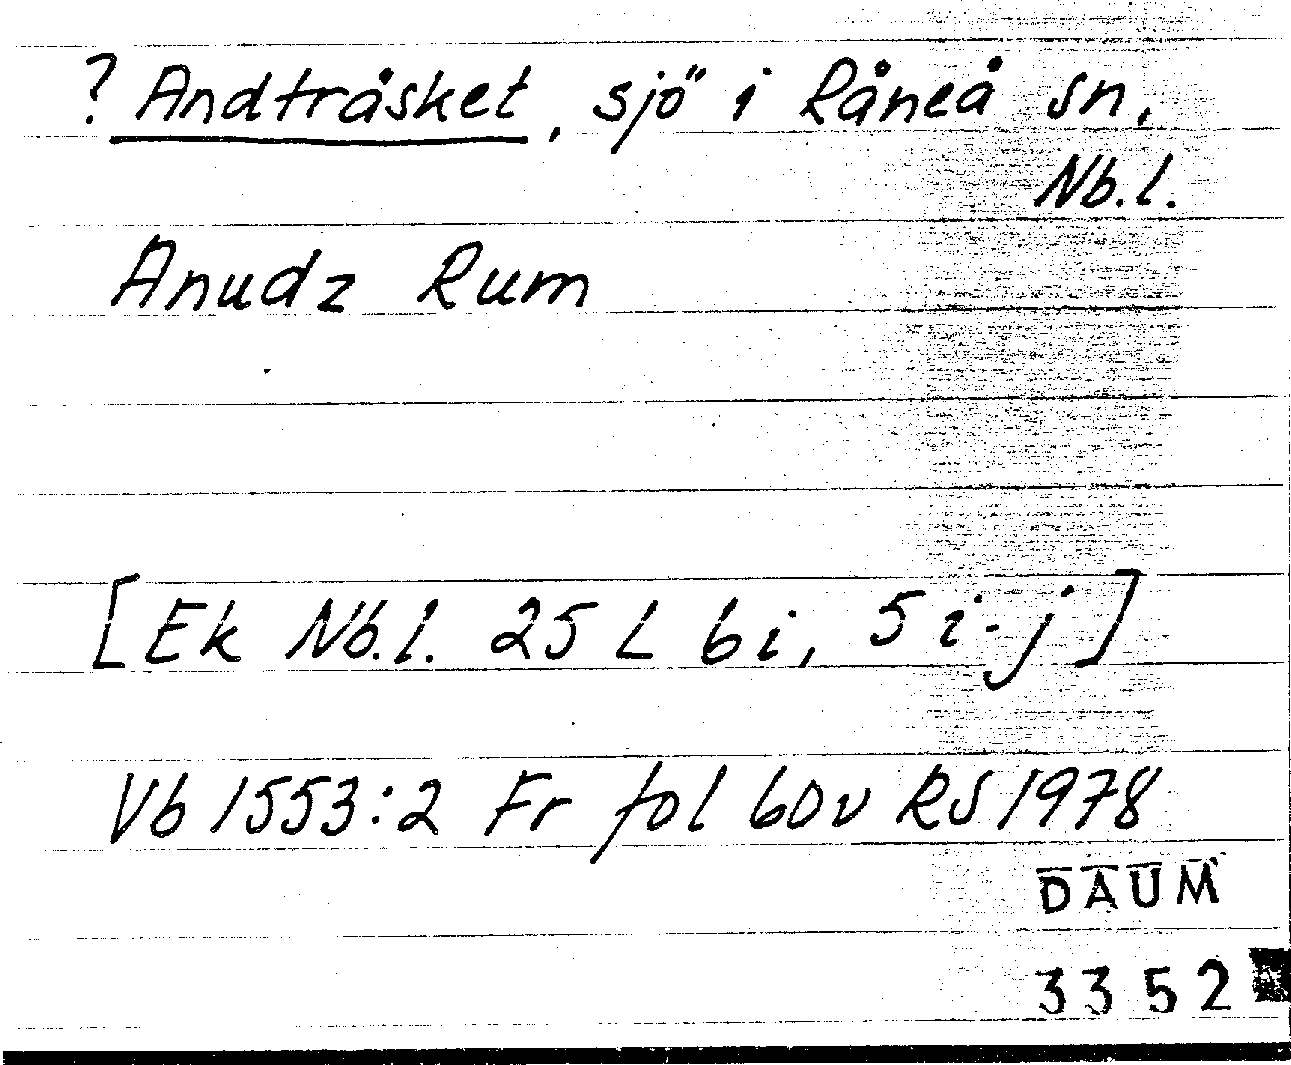 ? Andtråsket, sjö i Råneå sn,
Nb.l.
Anudz Rum
[Ek Nb.l. 25 L 6i, 5 i-j]
Vb 1553:2 Fr fol 60v RS 1978
DAUM
3352